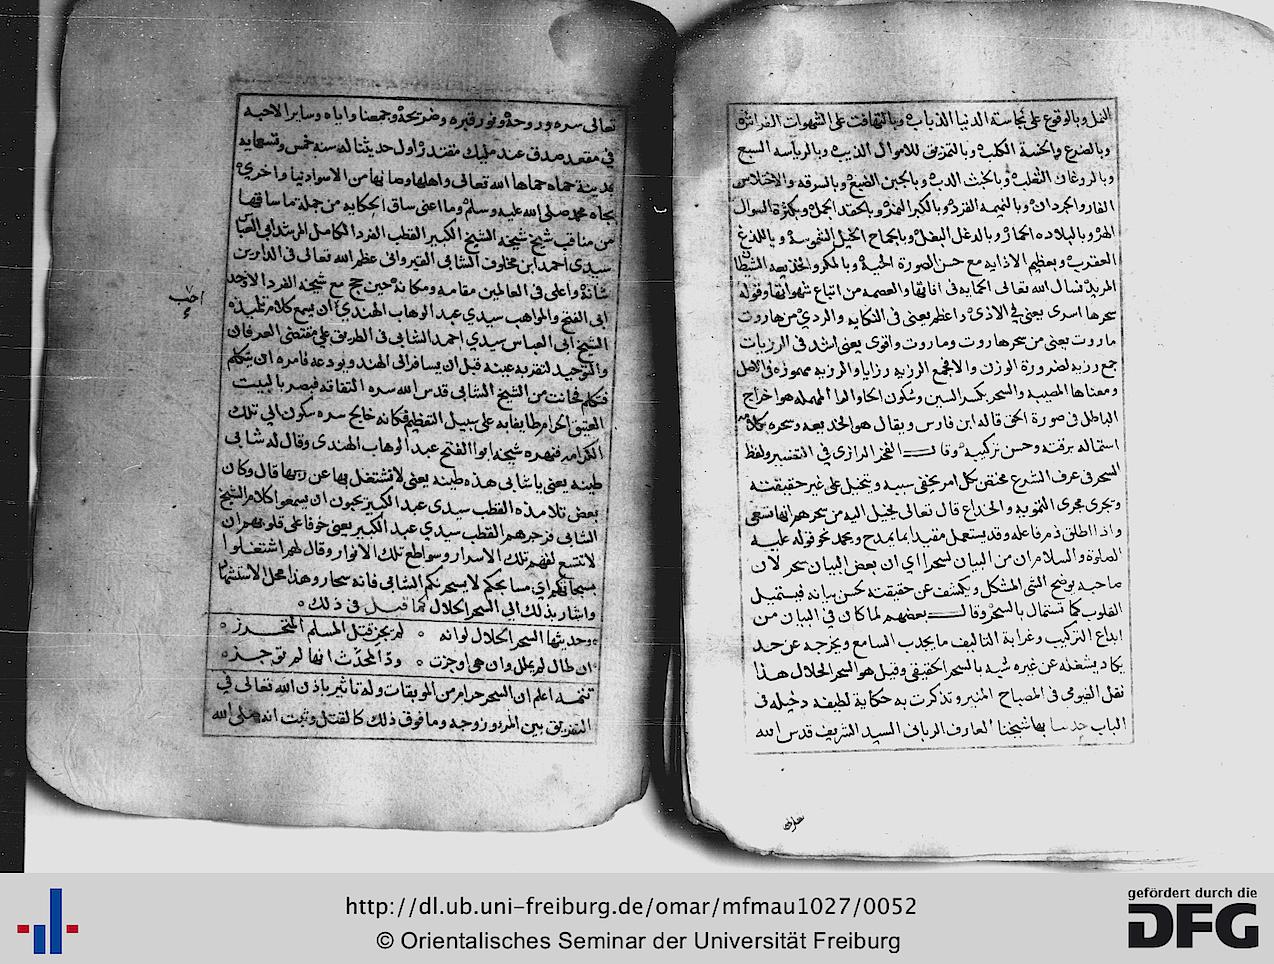 النمل وبالوقوع على نجاسة الدنيا الذباب وبالتهافت على الشهوات الفراش
وبالضرع والخسة الكلب وبالتمزيق للاموال الذيب وبالرياسه السبع
وبالروغان الثعلب وبالخبث الدب وبالجبن الضبع وبالسرقه والاختلاس
الفار والجردان وبالنميمه القرد وبالكبر النمر وبالحقد الجمل وبكثرة السوال
الهر وبالبلاده الحمار وبالدغل البغل وبالجماح الخيل الشموسة وباللدغ
العقرب وبعظيم الاذايه مع حسن الصورة الحية وبالمكر والخديعه الشيطان
المريد نسال الله تعالى الحمايه من اتباع شهواتها وقوله
سحرها اسرى يعنى في الاذى واعظم يعنى في النكايه والردي من هاروت
ماروت يعنى من سحر هاروت وماروت واقوى يعنى اشد فى الرزيات
جمع رزيه لضرورة الوزن والا فجمع الرزيه رزايا والرزيه مهموزه فى الاصل
ومعناها المصيبه والسحر بكسر السين وسكون الحاء المهمله هو اخراج
الباطل فى صورة الحق قاله ابن فارس ويقال هو الخديعه وسحره بكلامه
استماله برقته وحسن تركيبه وقال الفخر الرازي في التفسير ولفظ
السحر فى عرف الشرع مختص بكل امر يخفى سببه ويتخيل على غير حقيقته
ويجرى مجرى التمويه والخداع قال تعالى يخيل اليه من سحرهم انها تسعى
واذا اطلق ذم فاعله وقد يستعمل مقيدا بما يمدح ويحمد نحو قوله عليه
الصلوة والسلام ان من البيان لسحرا اي ان بعض البيان سحر لان
صاحبه يوضح الشى المشكل ويكشف عن حقيقته بحسن بيانه فيستميل
القلوب كما تستمال بالسحر وقال بعضهم لما كان في البيان من
ابداع التركيب وغرابة التاليف ما يجذب السامع ويخرجه عن حد
يكاد يشغله عن غيره شبه بالسحر الحقيقي وقيل هو السحر الحلال هذا
نقل الفيومى فى المصباح المنير وتذكرت به حكاية لطيفه دخيله فى
الباب حدثنا بها شيخنا العارف الربانى السيد الشريف قدس الله
تعالى سره وروحه ونور قبره وضريحه وجمعنا واياه وساير الاحبه
في مقعد صدق عند مليك مقتدر اول حديثنا له سنه خمس وتسعمايه
بمدينة حماه حماها الله تعالى واهلها وصانها من الاسواء دنيا واخرى
بجاه محمد صلى الله عليه وسلم وما اعنى ساق الحكايه من جملة ما ساقها
من مناقب شيخ شيخه الشيخ الكبير القطب الفرد الكامل المرشد ابى العباس
سيدي احمد ابن مخلوف الشابى القيروانى عظم الله تعالى فى الدارين
شانه واعلى فى العالمين مقامه ومكانه حين حج مع شيخه الفرد الاوحد
ابى الفتح والمواهب سيدي عبد الوهاب الهندي ان يسمع كلام تلميذه
احب
الشيخ ابى العباس سيدي احمد الشابى فى الطريق على مقتضى العرفان
والتوحيد لتقر به عينه قبل ان يسافر الى الهند ويودعه فامره ان يتكلم
فتكلم فحانت من الشيخ الشابى قدس الله سره التفاتة فبصر بالبيت
العتيق الحرام طايفا به على سبيل التعظيم فكانه خالج سره سكون الى تلك
الكرامه فنهره شيخه ابو الفتح عبد الوهاب الهندى وقال له شابى
طينه يعنى يا شابى هذه طينه يعنى لا تشتغل بها عن ربها قال وكان
بعض تلامذه القطب سيدى عبد الكبير يحبون ان يسمعوا كلام الشيخ
الشابى فزجرهم القطب سيدي عبد الكبير يعنى خوفا على قلوبهم ان
لا تتسع لفهم تلك الاسرار وسواطع تلك الانوار وقال لهم اشتغلوا
بسبحاتكم اي مسابحكم لا يسحرنكم الشابى فانه سحار وهذا محل الاستشهاد
واشار بذلك الى السحر الحلال كما قيل فى ذلك
وحديثها السحر الحلال لو انه لم يجن قتل المسلم المتحرز
ان طال لم يملل وان هى اوجزت ود المحدث انها لم توجز
تتمه اعلم ان السحر حرام من الموبقات وله تاثير باذن الله تعالى في
التفريق بين المرء وزوجه وما فوق ذلك كالقتل وثبت انه صلى الله
http://dl.ub.uni-freiburg.de/omar/mfmau1027/0052
© Orientalisches Seminar der Universität Freiburg
gefördert durch die
DFG